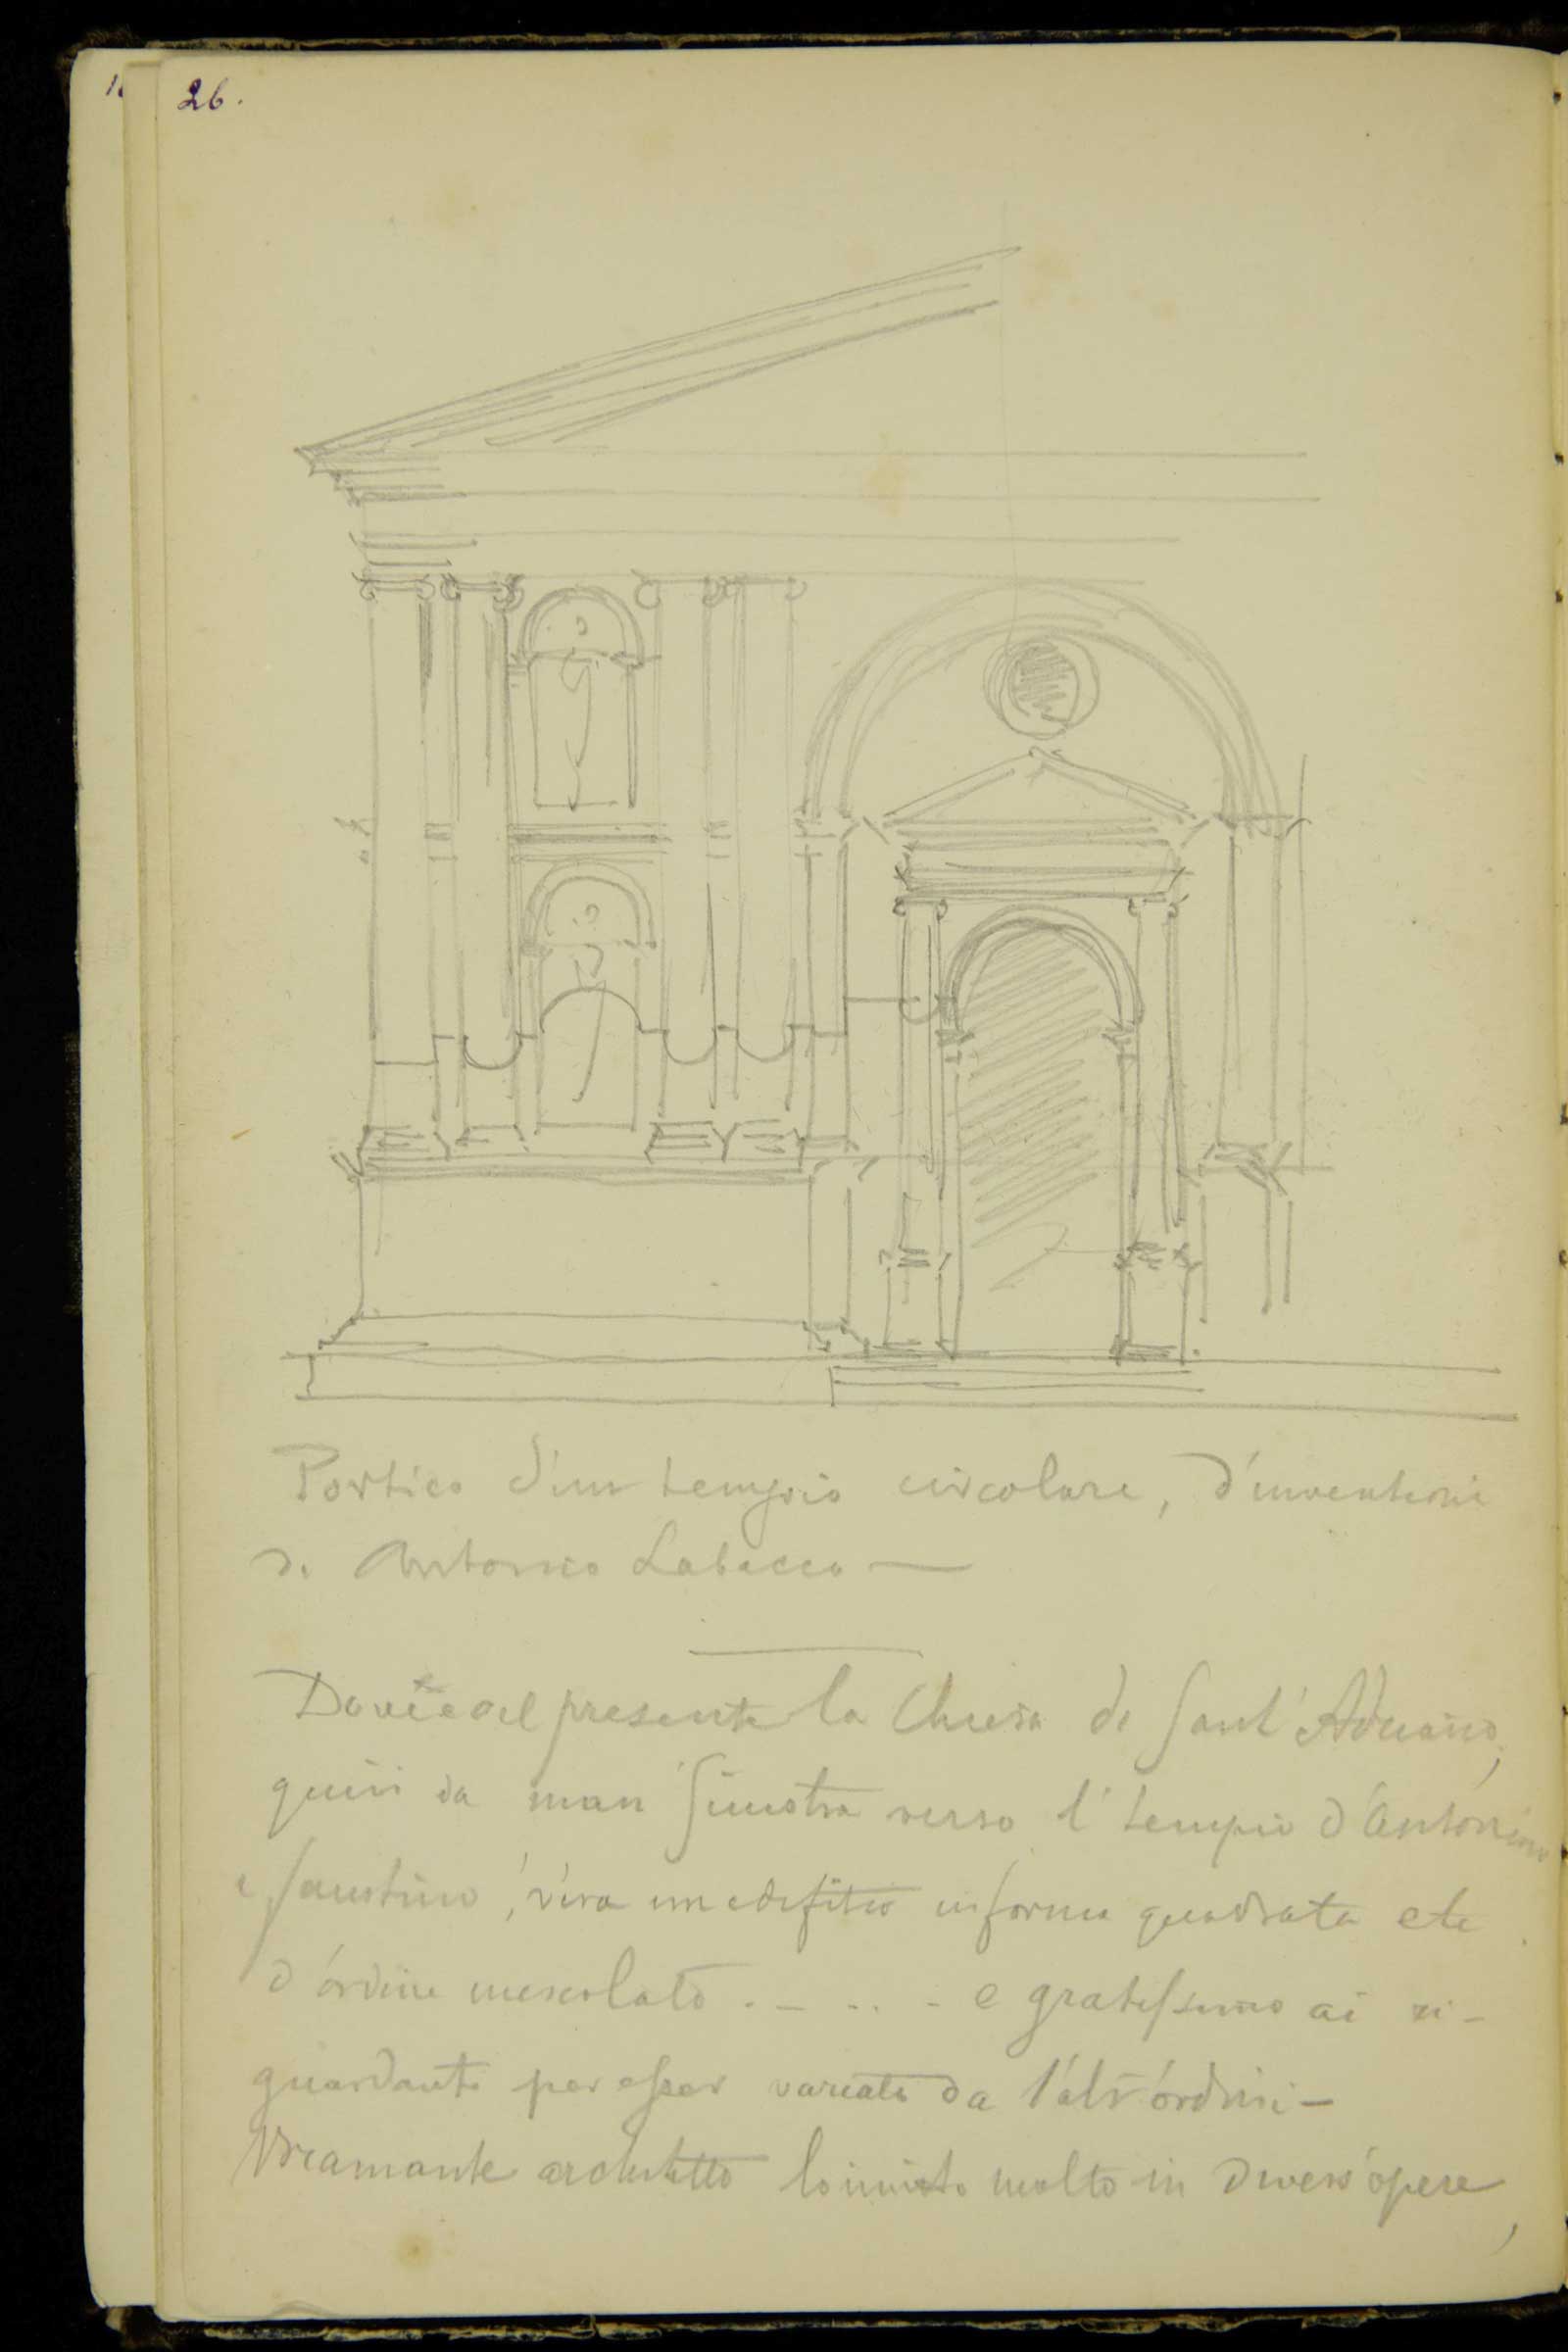 26.
Portico d'un tempio circolare, d'inventione
di Antonio Labacco —
Dov'è al presente la Chiesa di Sant' Adriano,
quivi da man' sinistra verso l' tempio d'Antonino
e faustino, v'era un edifitio in forma quadrata etc
d'órdine mescolato . – . . - e gratissimo ai ri-
guardanti per esser variato da l'altr' órdini –
Bramante architetto lo imitò molto in divers' opere,